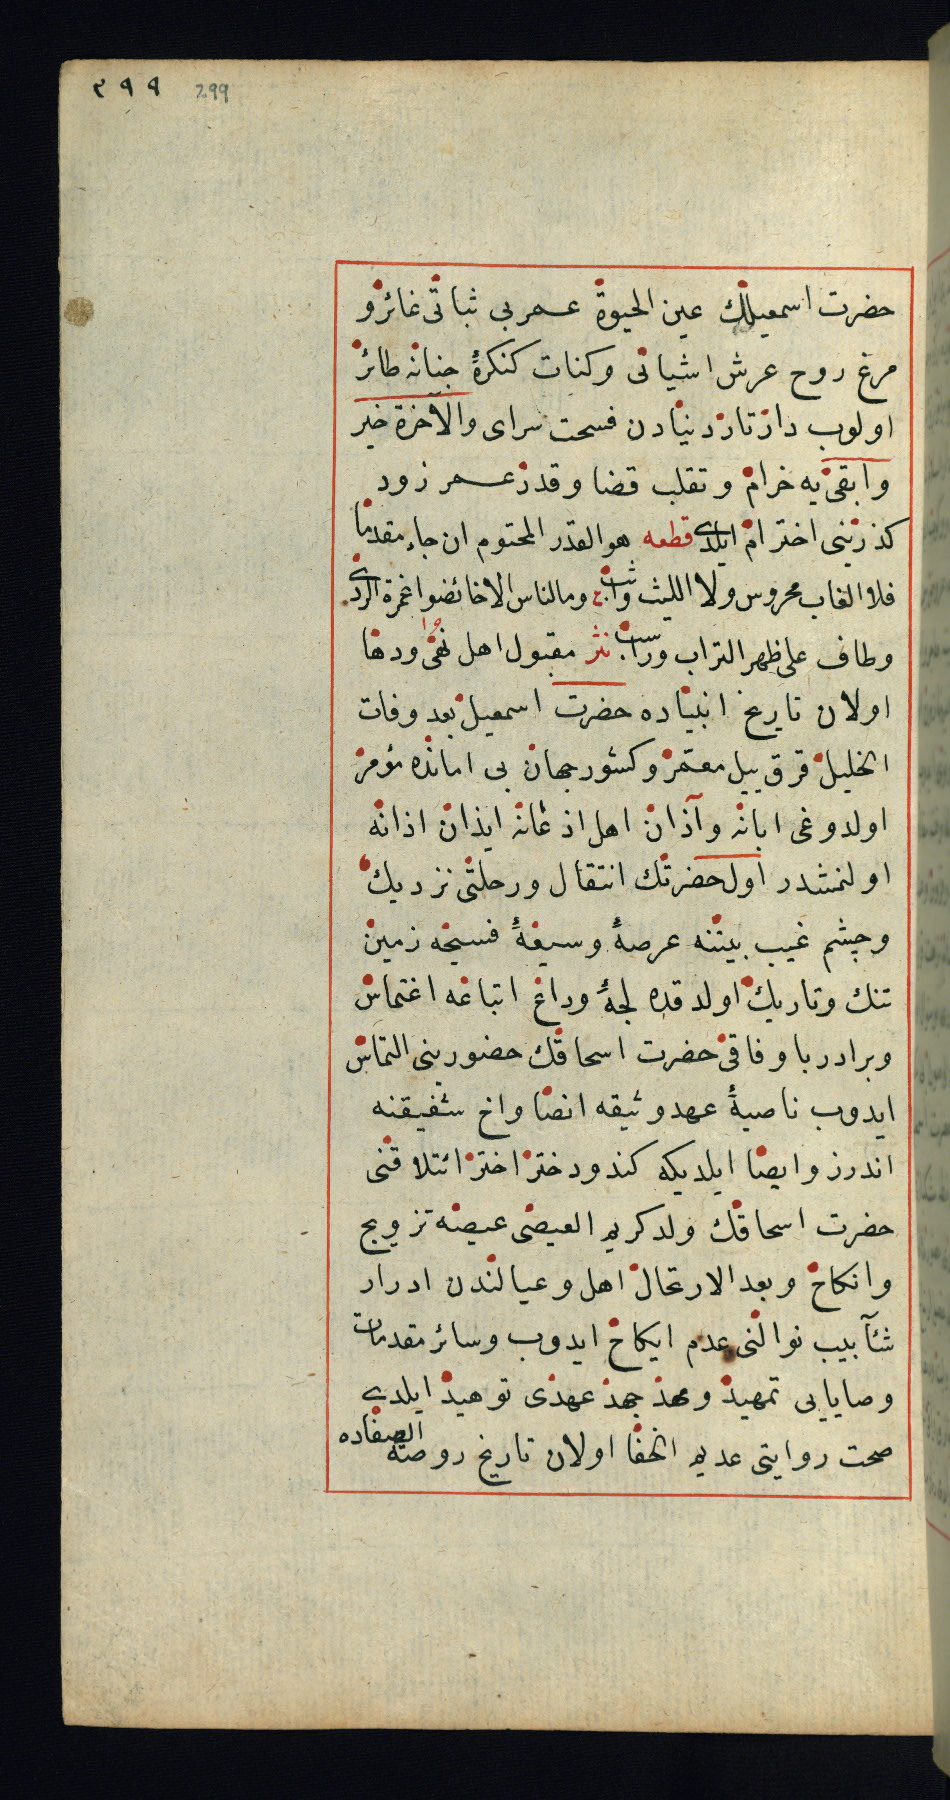 ٢٩٩ 299
حضرت اسمعیلڭ عین الحیوة عمر بی ثباتی غائر و
مرغ روح عرش اشیانی وکنات کنکرهٔ جنانه طائر
اولوب دار تار دنیادن فسحت سرای والآخرة خیر
وابقی یه خرام و تقلب قضا و قدر عمر زود
کذرینی اخترام ایلدی قطعه هو القدر المحتوم ان جاء مقدما
فلا الغاب محروس ولا اللیث واثب وما الناس الا خائضوا غمرة الردی
وطاف علی ظهر التراب وراسب نثر مقبول اهل نهی ودها
اولان تاریخ انبیاده حضرت اسمعیل بعد وفات
الخلیل قرق ییل معتمر و کشور جهان بی امانده مؤمر
اولدوغی ابانه و آذان اهل اذعانه ایذان اذانه
اولنمشدر اول حضرتڭ انتقال و رحلتی نزدیك
وچشم غیب بیننه عرصهٔ وسیعهٔ فسیحه زمین
تنك وتاریك اولدقده لجهٔ وداغ اتباعه اغتماس
وبرادر باوفاقی حضرت اسحاقڭ حضورینی التماس
ایدوب ناصیهٔ عهد وثیقه انصا واخ شفیقنه
اندرز وایصا ایلدیکه کندو دختر اختر ائتلاقنی
حضرت اسحاقڭ ولد کریم العیصی عیصه تزویج
وانکاح وبعد الارتحال اهل وعیالندن ادرار
شآبیب نوالنی عدم ایکاح ایدوب وسائر مقدمات
وصایایی تمهید ومهد جهد عهدی توهید ایلدی
صحت روایتی عدیم الخفا اولان تاریخ روضة الصفاده